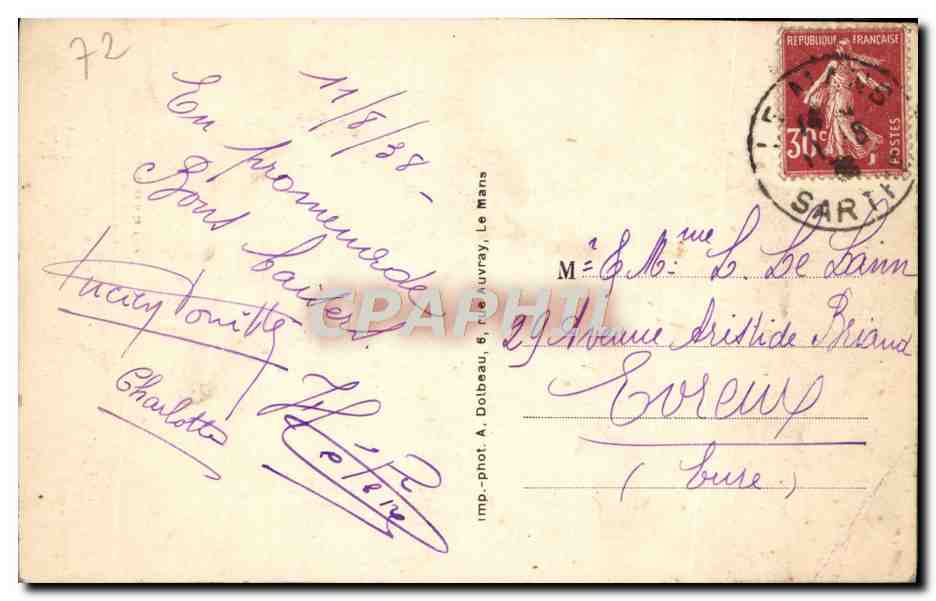 72
11/8/38 -
En promenade
Bons baisers
Charlotte
Hélène
Imp.-phot. A. Dolbeau, 6, rue Auvray, Le Mans
REPUBLIQUE FRANÇAISE
30c
POSTES
LE MANS
SARTHE
CPAPHIL
Mr & Mme L. Le Lann
29 Avenue Aristide Briand
Evreux
(Eure)